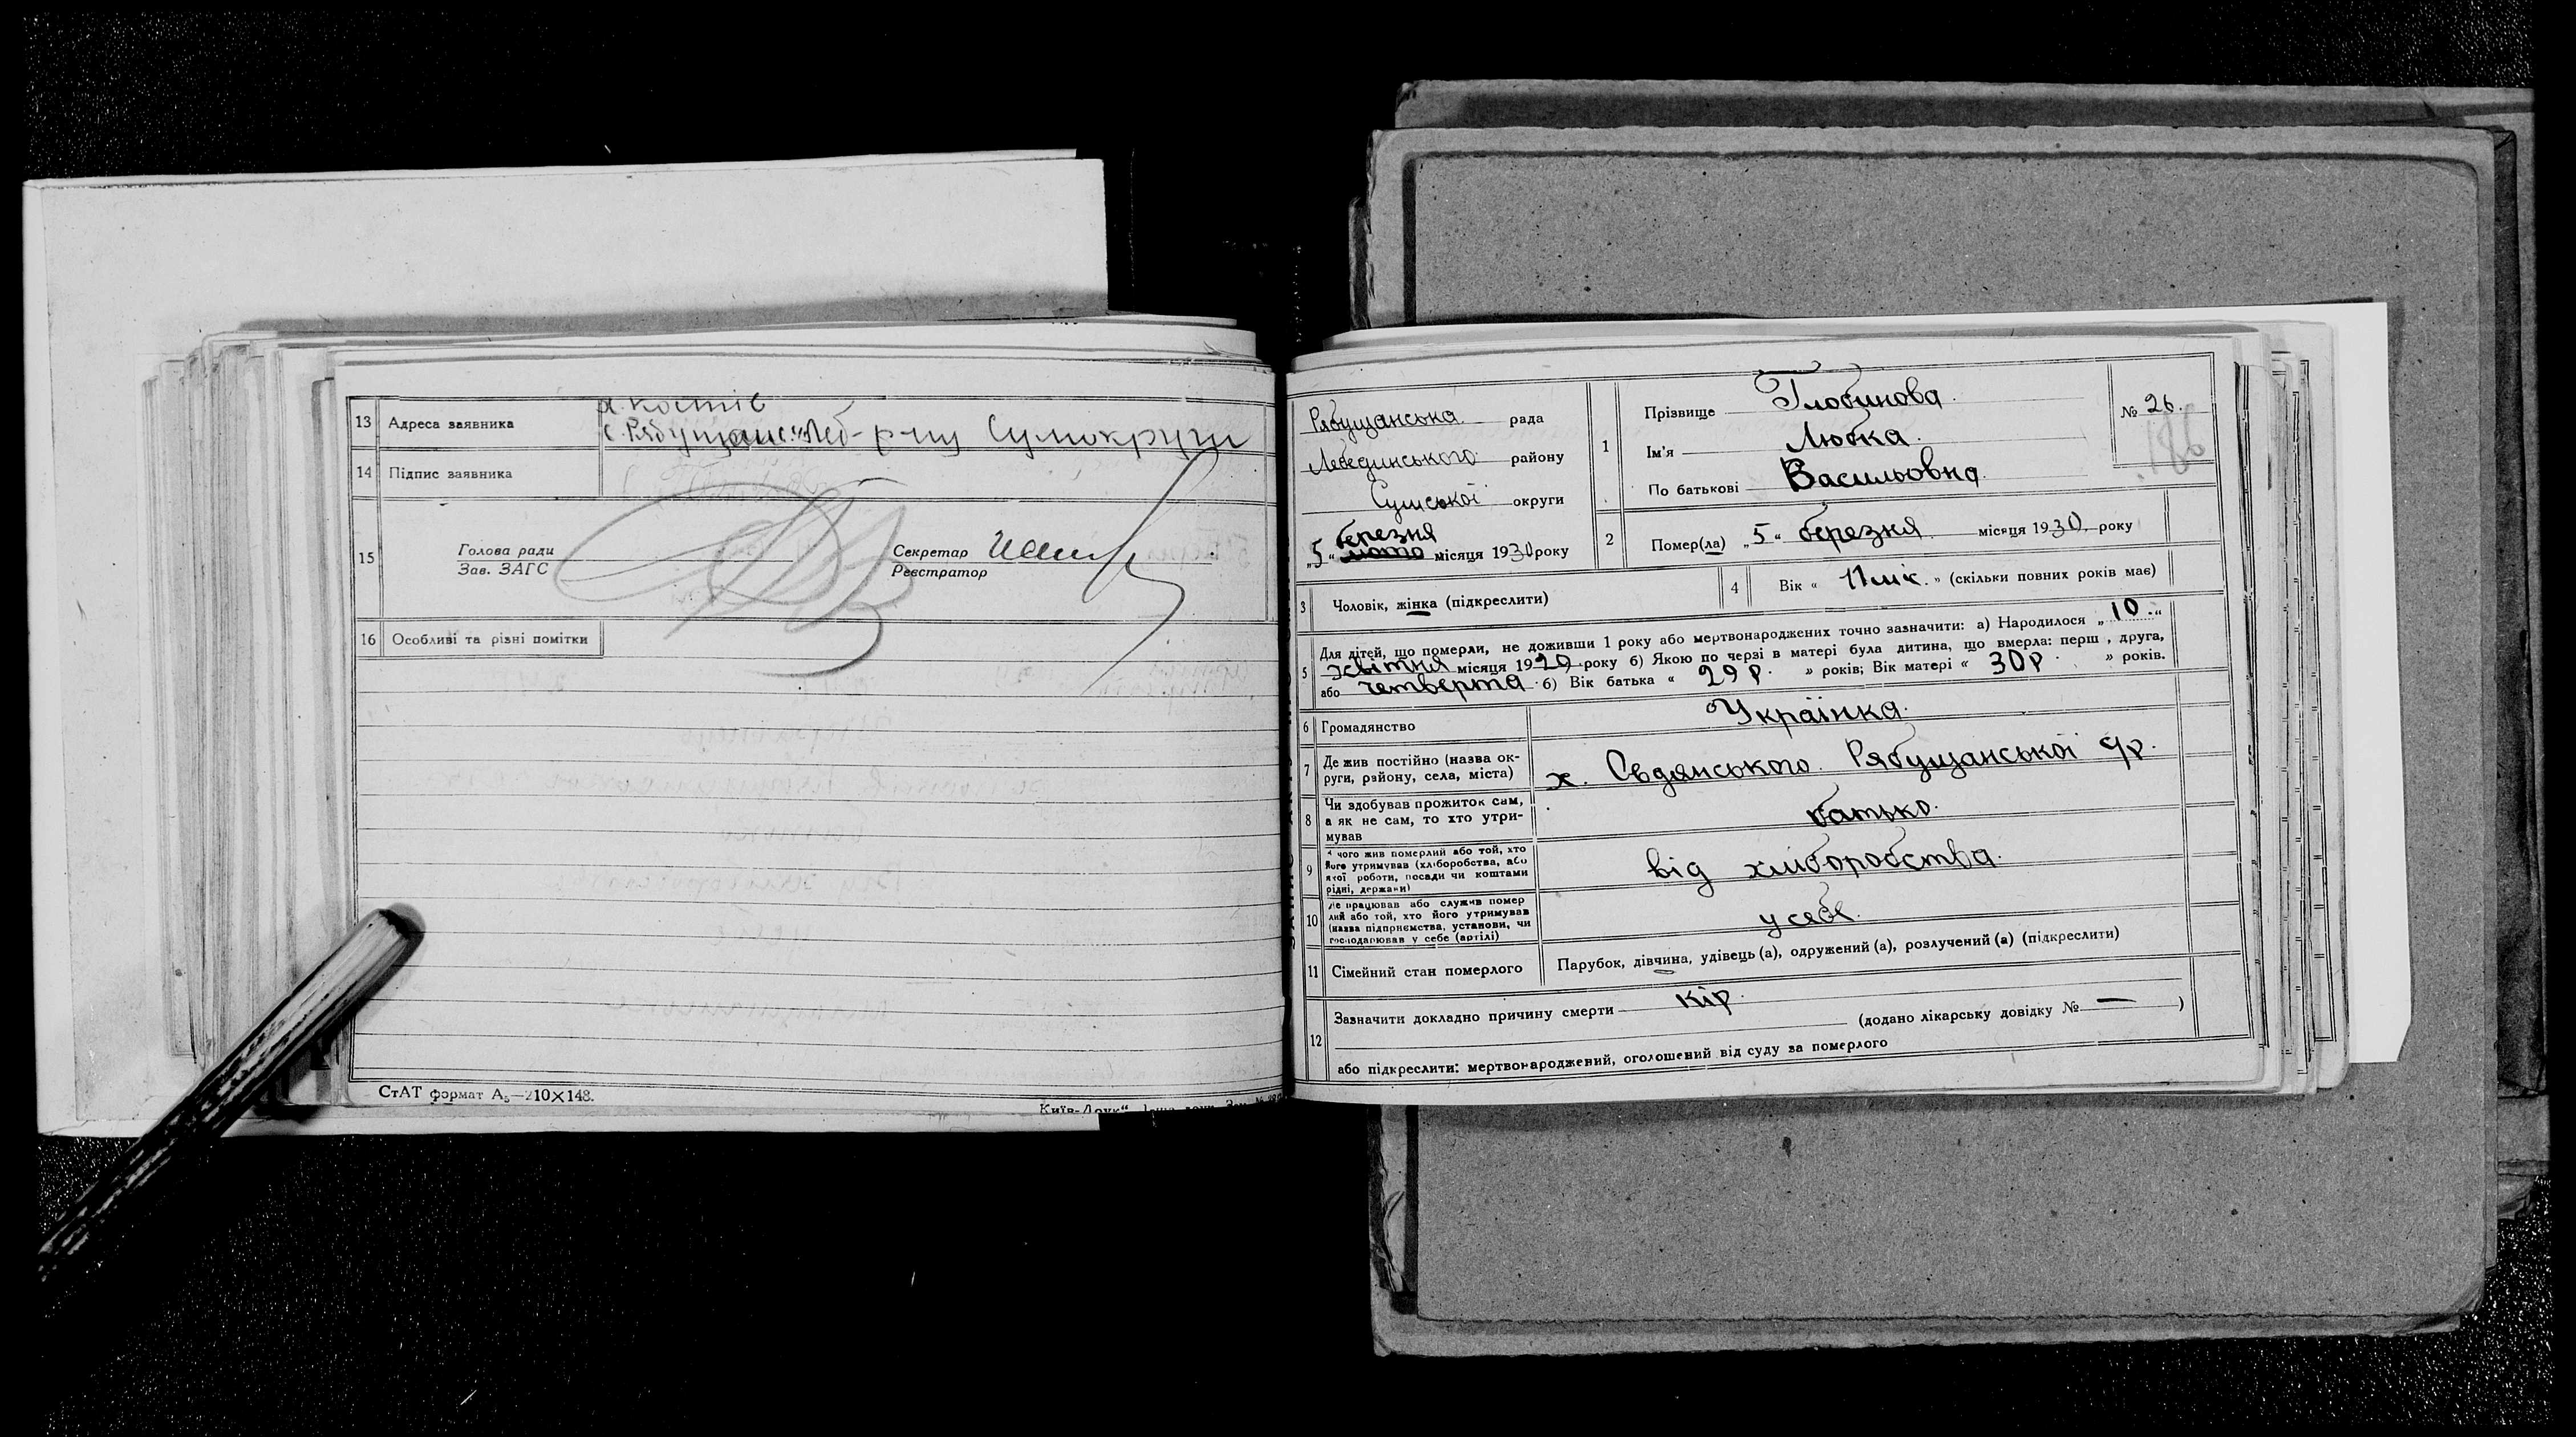 х. Костів
13 Адреса заявника с. Рябущанс. Леб- р-ну Сумокруги
14 Підпис заявника
15 Голова ради
Зав. ЗАГС
Секретар
Реєстратор
16 Особливі та різні помітки
СтАТ формат А₅—210×148.
Рябущанська рада
Лебединського району
Сумської округи
березня
„5“ місяця 1930 року
1 Прізвище Глобинова
Ім'я Любка.
По батькові Васильовна.
№ 26.
186
2 Помер(ла) „5“ березня місяця 1930. року
3 Чоловік, жінка (підкреслити)
4 Вік « 11 міс. » (скільки повних років має)
5 Для дітей, що померли, не доживши 1 року або мертвонароджених точно зазначити: а) Народилося „10.“
квітня місяця 1929 року б) Якою по черзі в матері була дитина, що вмерла: перш , друга,
або четверта б) Вік батька « 29 р. » років; Вік матері « 30 р. » років.
6 Громадянство Українка.
7 Де жив постійно (назва ок-
руги, району, села, міста) х. Овдянського Рябущанської с/р.
8 Чи здобував прожиток сам,
а як не сам, то хто утри-
мував батько.
9 чого жив померлий або той, хто
його утримував (хліборобства, або
якої роботи, посади чи коштами
рідні, держави) від хліборобства.
10 Де працював або служив помер
лий або той, хто його утримував
(назва підприємства, установи, чи
господарював у себе (артілі) у себе.
11 Сімейний стан померлого Парубок, дівчина, удівець (а), одружений (а), розлучений (а) (підкреслити)
12 Зазначити докладно причину смерти кір.
(додано лікарську довідку № — )
або підкреслити: мертвонароджений, оголошений від суду за померлого